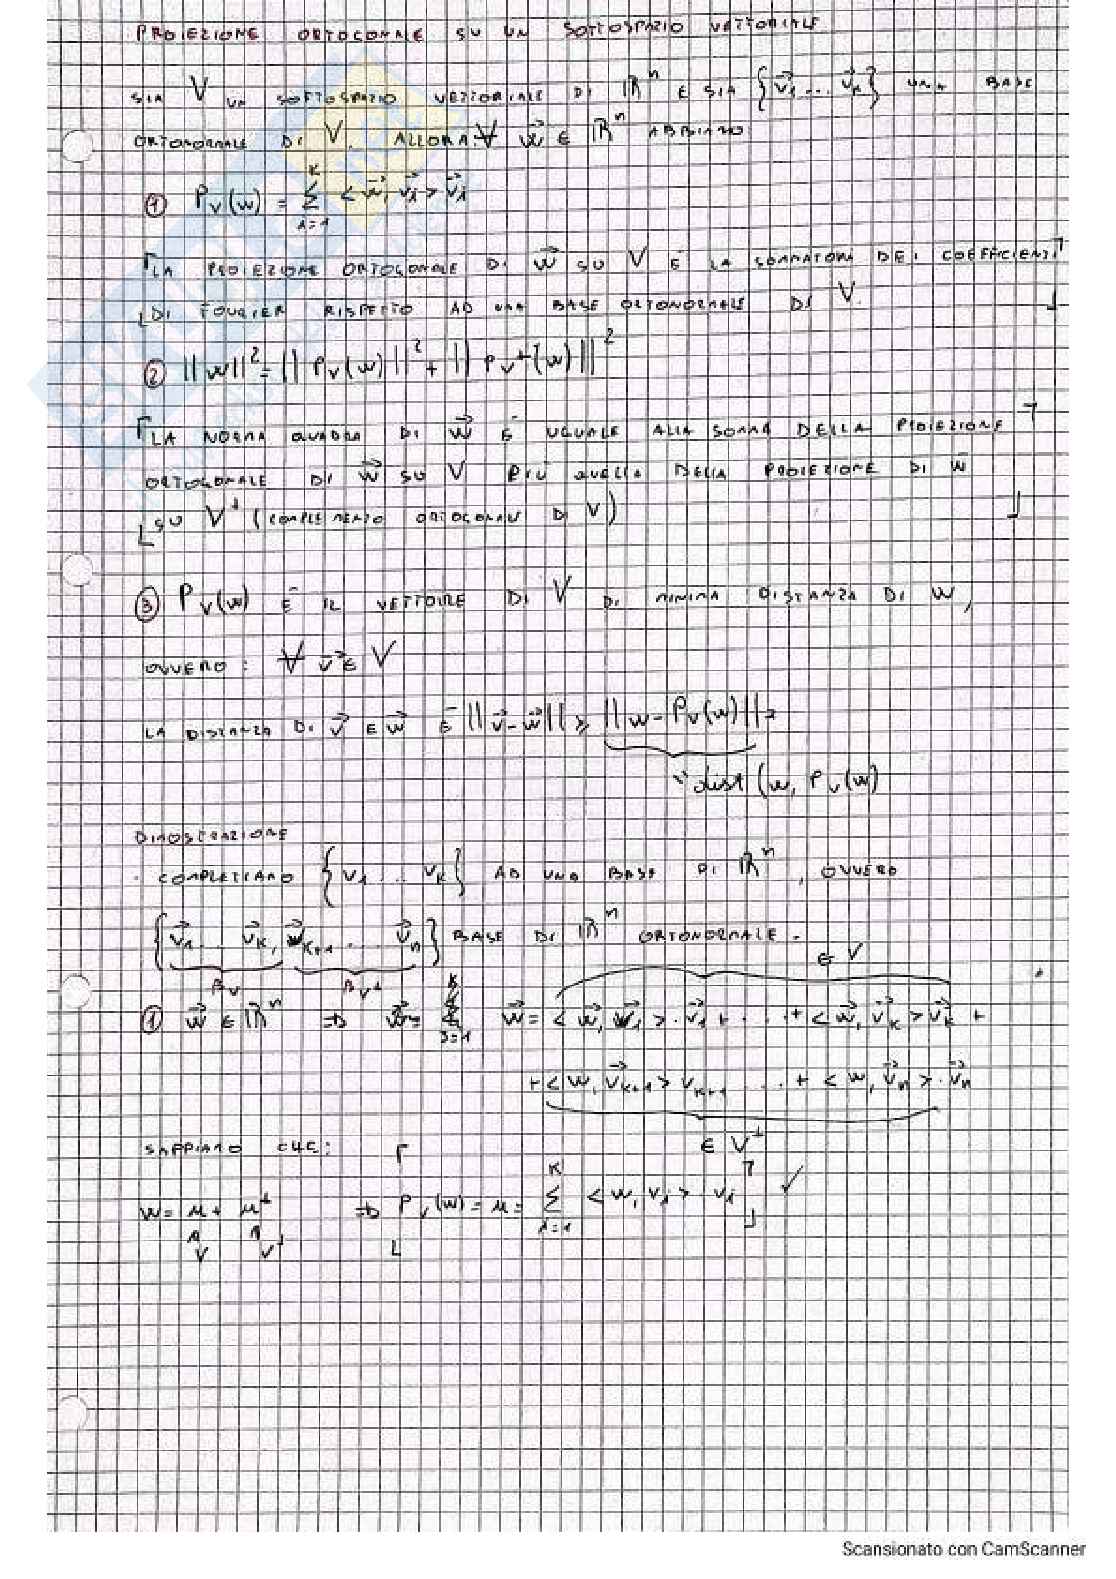 PROIEZIONE ORTOGONALE SU UN SOTTOSPAZIO VETTORIALE
SIA V UN SOTTOSPAZIO VETTORIALE DI ℝⁿ E SIA {v⃗₁ ... v⃗ₖ} UNA BASE
ORTONORMALE DI V. ALLORA ∀ w⃗ ∈ ℝⁿ ABBIAMO
① P_V(w) = Σ_{i=1}^{K} <w⃗, v⃗ᵢ> v⃗ᵢ
⌈LA PROIEZIONE ORTOGONALE DI w⃗ SU V È LA SOMMATORIA DEI COEFFICIENTI⌉
⌊DI FOURIER RISPETTO AD UNA BASE ORTONORMALE DI V.⌋
② ||w||² = || P_V(w) ||² + || P_V⊥(w) ||²
⌈LA NORMA QUADRA DI w⃗ È UGUALE ALLA SOMMA DELLA PROIEZIONE⌉
ORTOGONALE DI w⃗ SU V PIÙ QUELLA DELLA PROIEZIONE DI w
⌊SU V⊥ (COMPLEMENTO ORTOGONALE DI V)⌋
③ P_V(w) È IL VETTORE DI V DI MINIMA DISTANZA DI W,
OVVERO: ∀ v⃗ ∈ V
LA DISTANZA DI v⃗ E w⃗ È ||v⃗ - w⃗|| ≥ ||w - P_V(w)||
dist (w, P_V(w)
DIMOSTRAZIONE
COMPLETIAMO {v₁ ... vₖ} AD UNA BASE DI ℝⁿ, OVVERO
{v⃗₁ ... v⃗ₖ, v⃗ₖ₊₁ ... v⃗ₙ} BASE DI ℝⁿ ORTONORMALE.
∈ V
B_V B_V⊥
① w⃗ ∈ ℝⁿ ⇒ w⃗ = <w⃗, v⃗₁> · v⃗₁ + ... + <w⃗, v⃗ₖ> v⃗ₖ +
+ <w, v⃗ₖ₊₁> vₖ₊₁ ... + <w, v⃗ₙ> · v⃗ₙ
∈ V⊥
SAPPIAMO CHE:
w = u + u⊥ ⇒ P_V(w) = u = Σ_{i=1}^{K} <w, vᵢ> vᵢ ✓
V V⊥
Scansionato con CamScanner